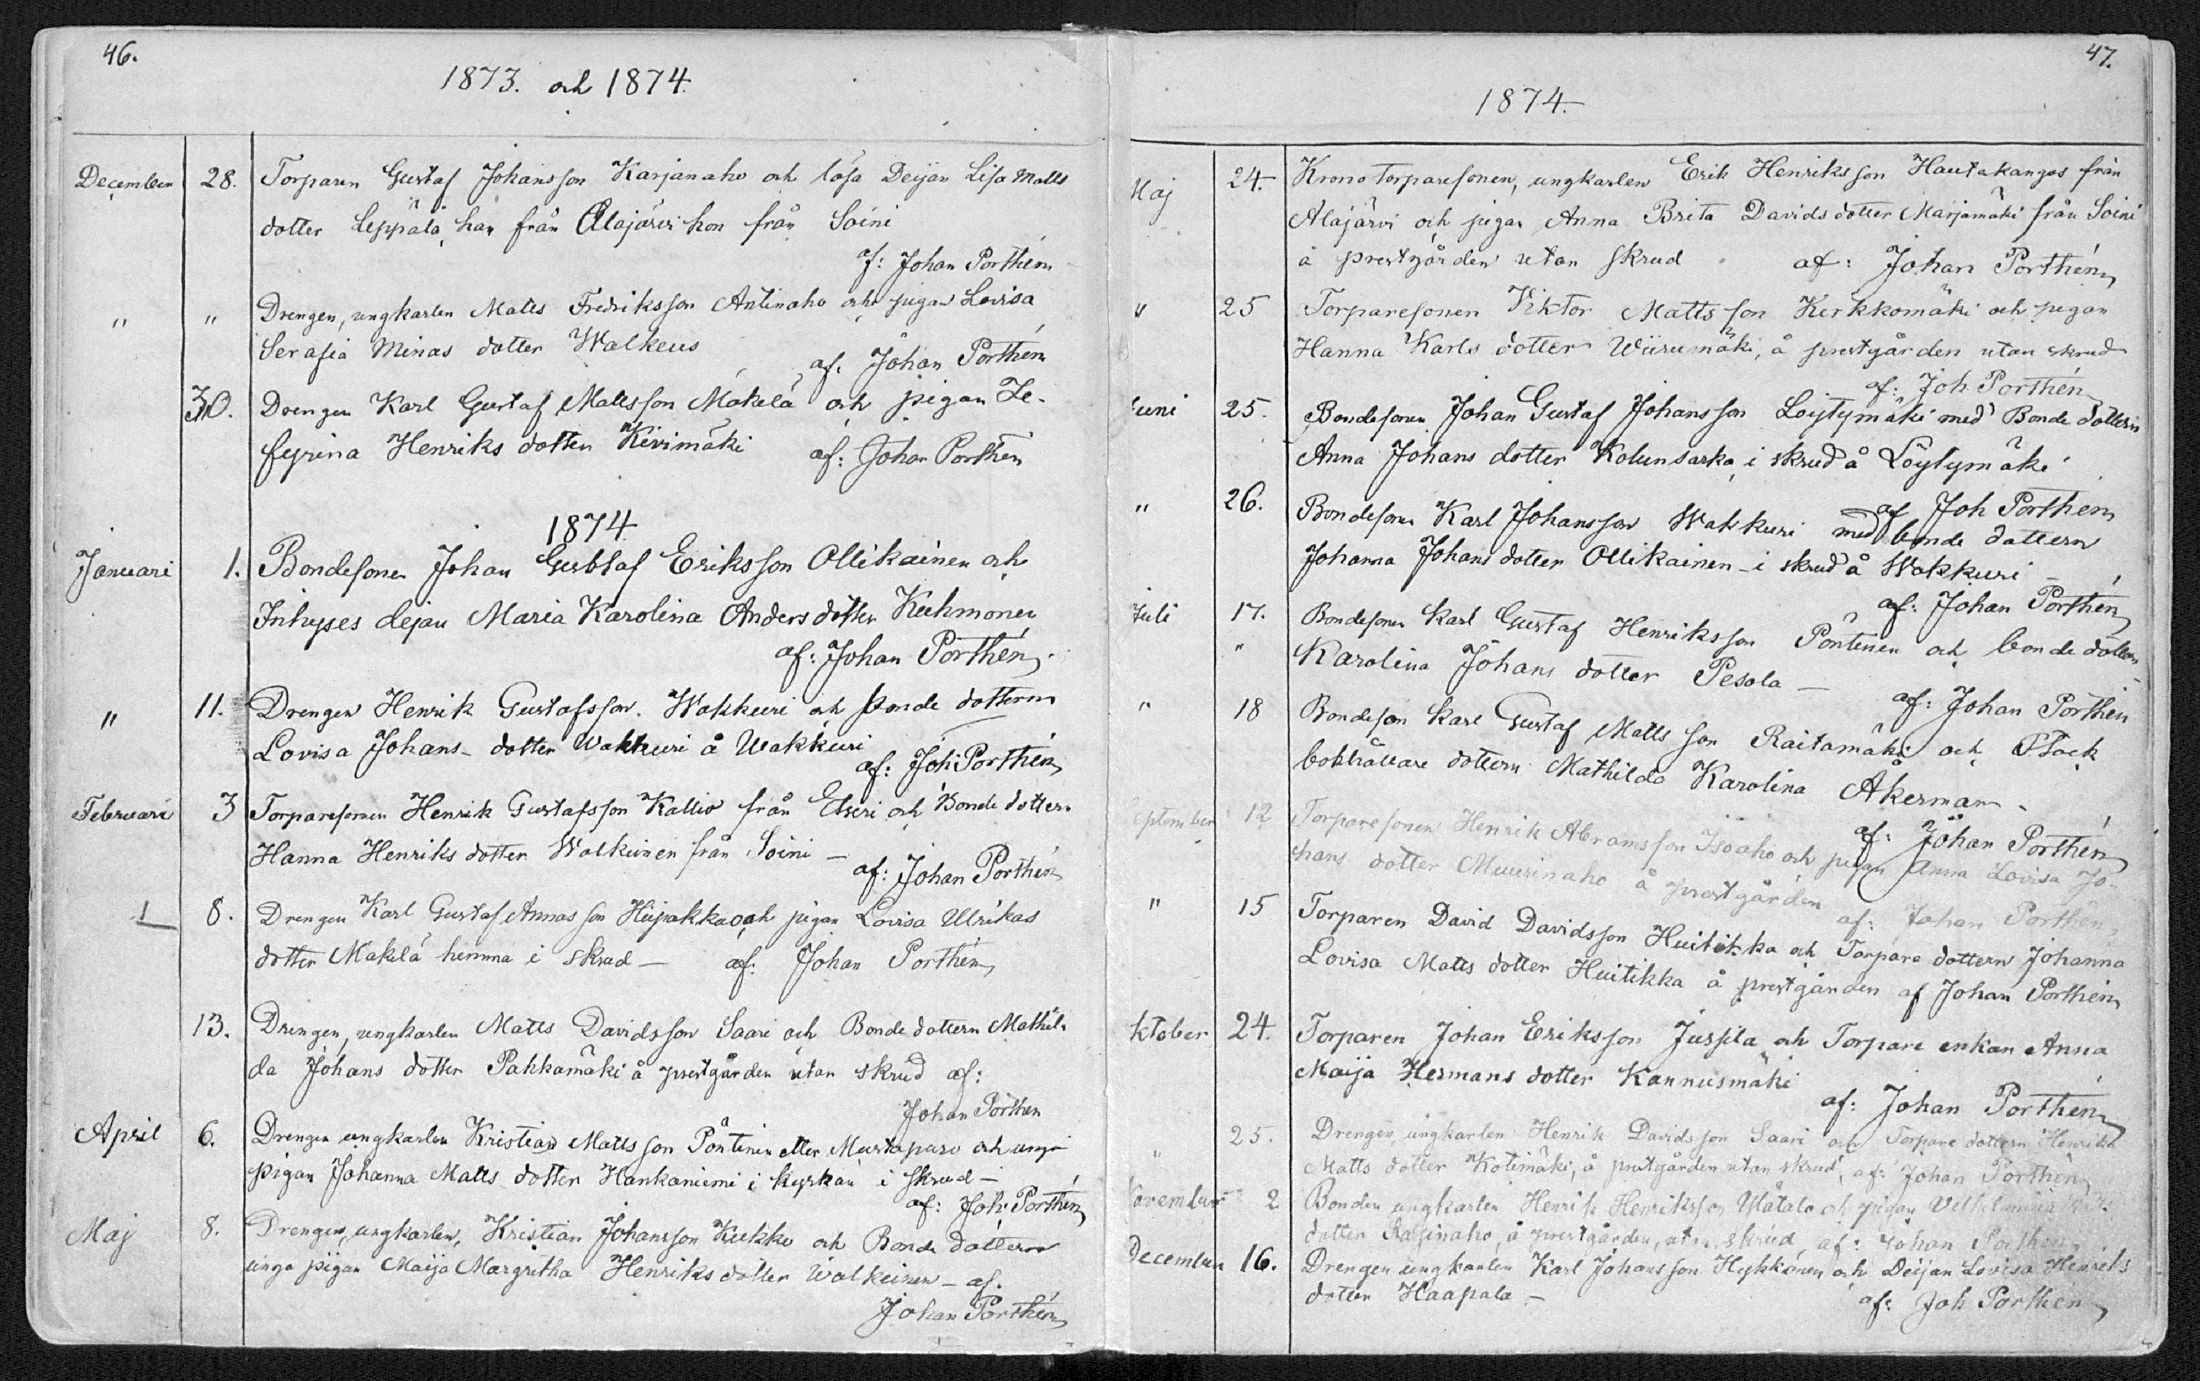 46.
1873. och 1874.
December 28. Torparen Gustaf Johansson Karjanaho och lösa Deijan Lisa Matts
dotter Leppälä, han från Alajärvi hon från Soini
af: Johan Porthén
" " Drengen, ungkarlen Matts Fredriksson Antinaho och pigan Lovisa
Serafia Minas dotter Walkeus
af. Johan Porthén
30. Drengen Karl Gustaf Mattsson Mäkelä och pigan Ze-
fyrina Henriks dotter Kivimäki af: Johan Porthén
1874
Januari 1. Bondesonen Johan Gustaf Eriksson Ollikainen och
Inhyses dejan Maria Karolina Anders dotter Kuhmonen
af: Johan Porthén
" 11. Drengen Henrik Gustafsson Wakkuri och bonde dottern
Lovisa Johans dotter Wakkuri å Wakkuri
af: Joh Porthén
Februari 3 Torparesonen Henrik Gustafsson Kallio från Etseri och Bonde dottern
Hanna Henriks dotter Walkeinen från Soini –
af: Johan Porthén
8. Drengen Karl Gustaf Annas son Hiipakka och pigan Lovisa Ulrikas
dotter Mäkelä hemma i skrud – af: Johan Porthén
13. Drengen, ungkarlen Matts Davidsson Saari och Bonde dottern Mathil-
da Johans dotter Pahkamäki å prestgården utan skrud af:
Johan Porthén
April 6. Drengen ungkarlen Kristian Matts son Pöntinen eller Mustapuro och unga
pigan Johanna Matts dotter Hankaniemi i kyrkan i skrud –
af: Joh Porthén
Maj 8. Drengen, ungkarlen, Kristian Johansson Kukko och Bonde dottern
unga pigan Maija Margretha Henriks dotter Walkeinen – af.
Johan Porthén
47.
1874.
Maj 24. Kronotorparesonen, ungkarlen Erik Henriksson Hautakangas från
Alajärvi och pigan Anna Brita Davids dotter Marjamäki från Soini
å prestgården utan skrud af: Johan Porthén
" 25 Torparesonen Viktor Matts son Kirkkomäki och pigan
Hanna Karls dotter Wiirumäki, å prestgården utan skrud
af: Joh Porthén
Juni 25. Bondesonen Johan Gustaf Johansson Löytymäki med Bonde dottern
Anna Johans dotter Kolunsarka i skrud å Löytymäki
af Joh Porthén
" 26. Bondesonen Karl Johansson Wakkuri med bonde dottern
Johanna Johans dotter Ollikainen – i skrud å Wakkuri –
af: Johan Porthén
Juli 17. Bondesonen Karl Gustaf Henriksson Pöntinen och bonde dottern
" Karolina Johans dotter Pesola –
af: Johan Porthén
" 18 Bondeson Karl Gustaf Matts son Raitamäki och
bokhållare dottern Mathilda Karolina Åkerman.
af: Johan Porthén
eptember 12 Torparesonen Henrik Abramsson Isoaho och pigan Anna Lovisa Jo-
hans dotter Muurinaho å prestgården af: Johan Porthén
" 15 Torparen David Davidsson Huitikka och Torpare dottern Johanna
Lovisa Matts dotter Huitikka å prestgården af Johan Porthén
ktober 24. Torparen Johan Eriksson Jussila och Torpare enkan Anna
Maija Hermans dotter Kannusmäki
af: Johan Porthén
" 25. Drengen, ungkarlen Henrik Davidsson Saari och Torpare dottern Henrika
Matts dotter Kotimäki, å prestgården utan skrud, af: Johan Porthén
November 2 Bonden ungkarlen Henrik Henriksson Uiatalo och pigan Vilhelmina
dotter å prestgården, utan skrud af: Johan Porthén
December 16. Drengen ungkarlen Karl Johansson Hykkönen och Deijan Lovisa Henriks
dotter Haapala –
af: Joh Porthén